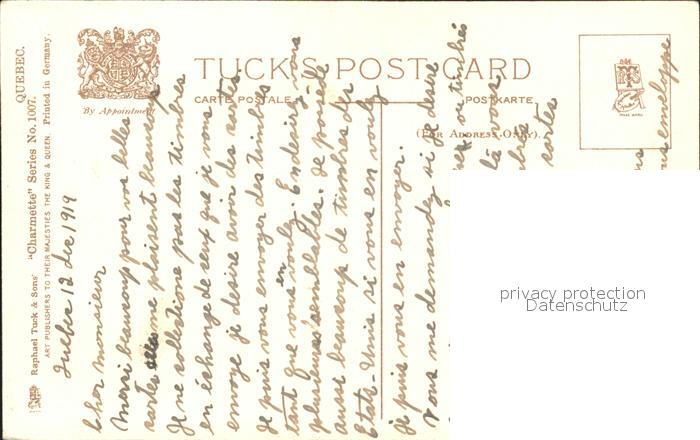 QUEBEC.
"Charmette" Series No. 1007.
Raphael Tuck & Sons'
ART PUBLISHERS TO THEIR MAJESTIES THE KING & QUEEN. Printed in Germany.
By Appointment
TUCK'S POST CARD
CARTE POSTALE
POSTKARTE
(FOR ADDRESS ONLY).
TRADE MARK
Quebec 12 dec 1919
Cher monsieur
Merci beaucoup pour vos belles
cartes elles me plaisent beaucoup
Je ne collectione pas les timbres
en échange de ceux que je vous
envoye je desire avoir des cartes
Je puis vous envoyer des timbres
tant que vous en voulez. En desirez vous
plusieurs semblables. Je possède
aussi beaucoup de timbres des
Etats-Unis si vous en voulez
je puis vous en envoyer.
Vous me demandez si je desire
ou timbrés
là vous
cartes
sous enveloppe
privacy protection
Datenschutz